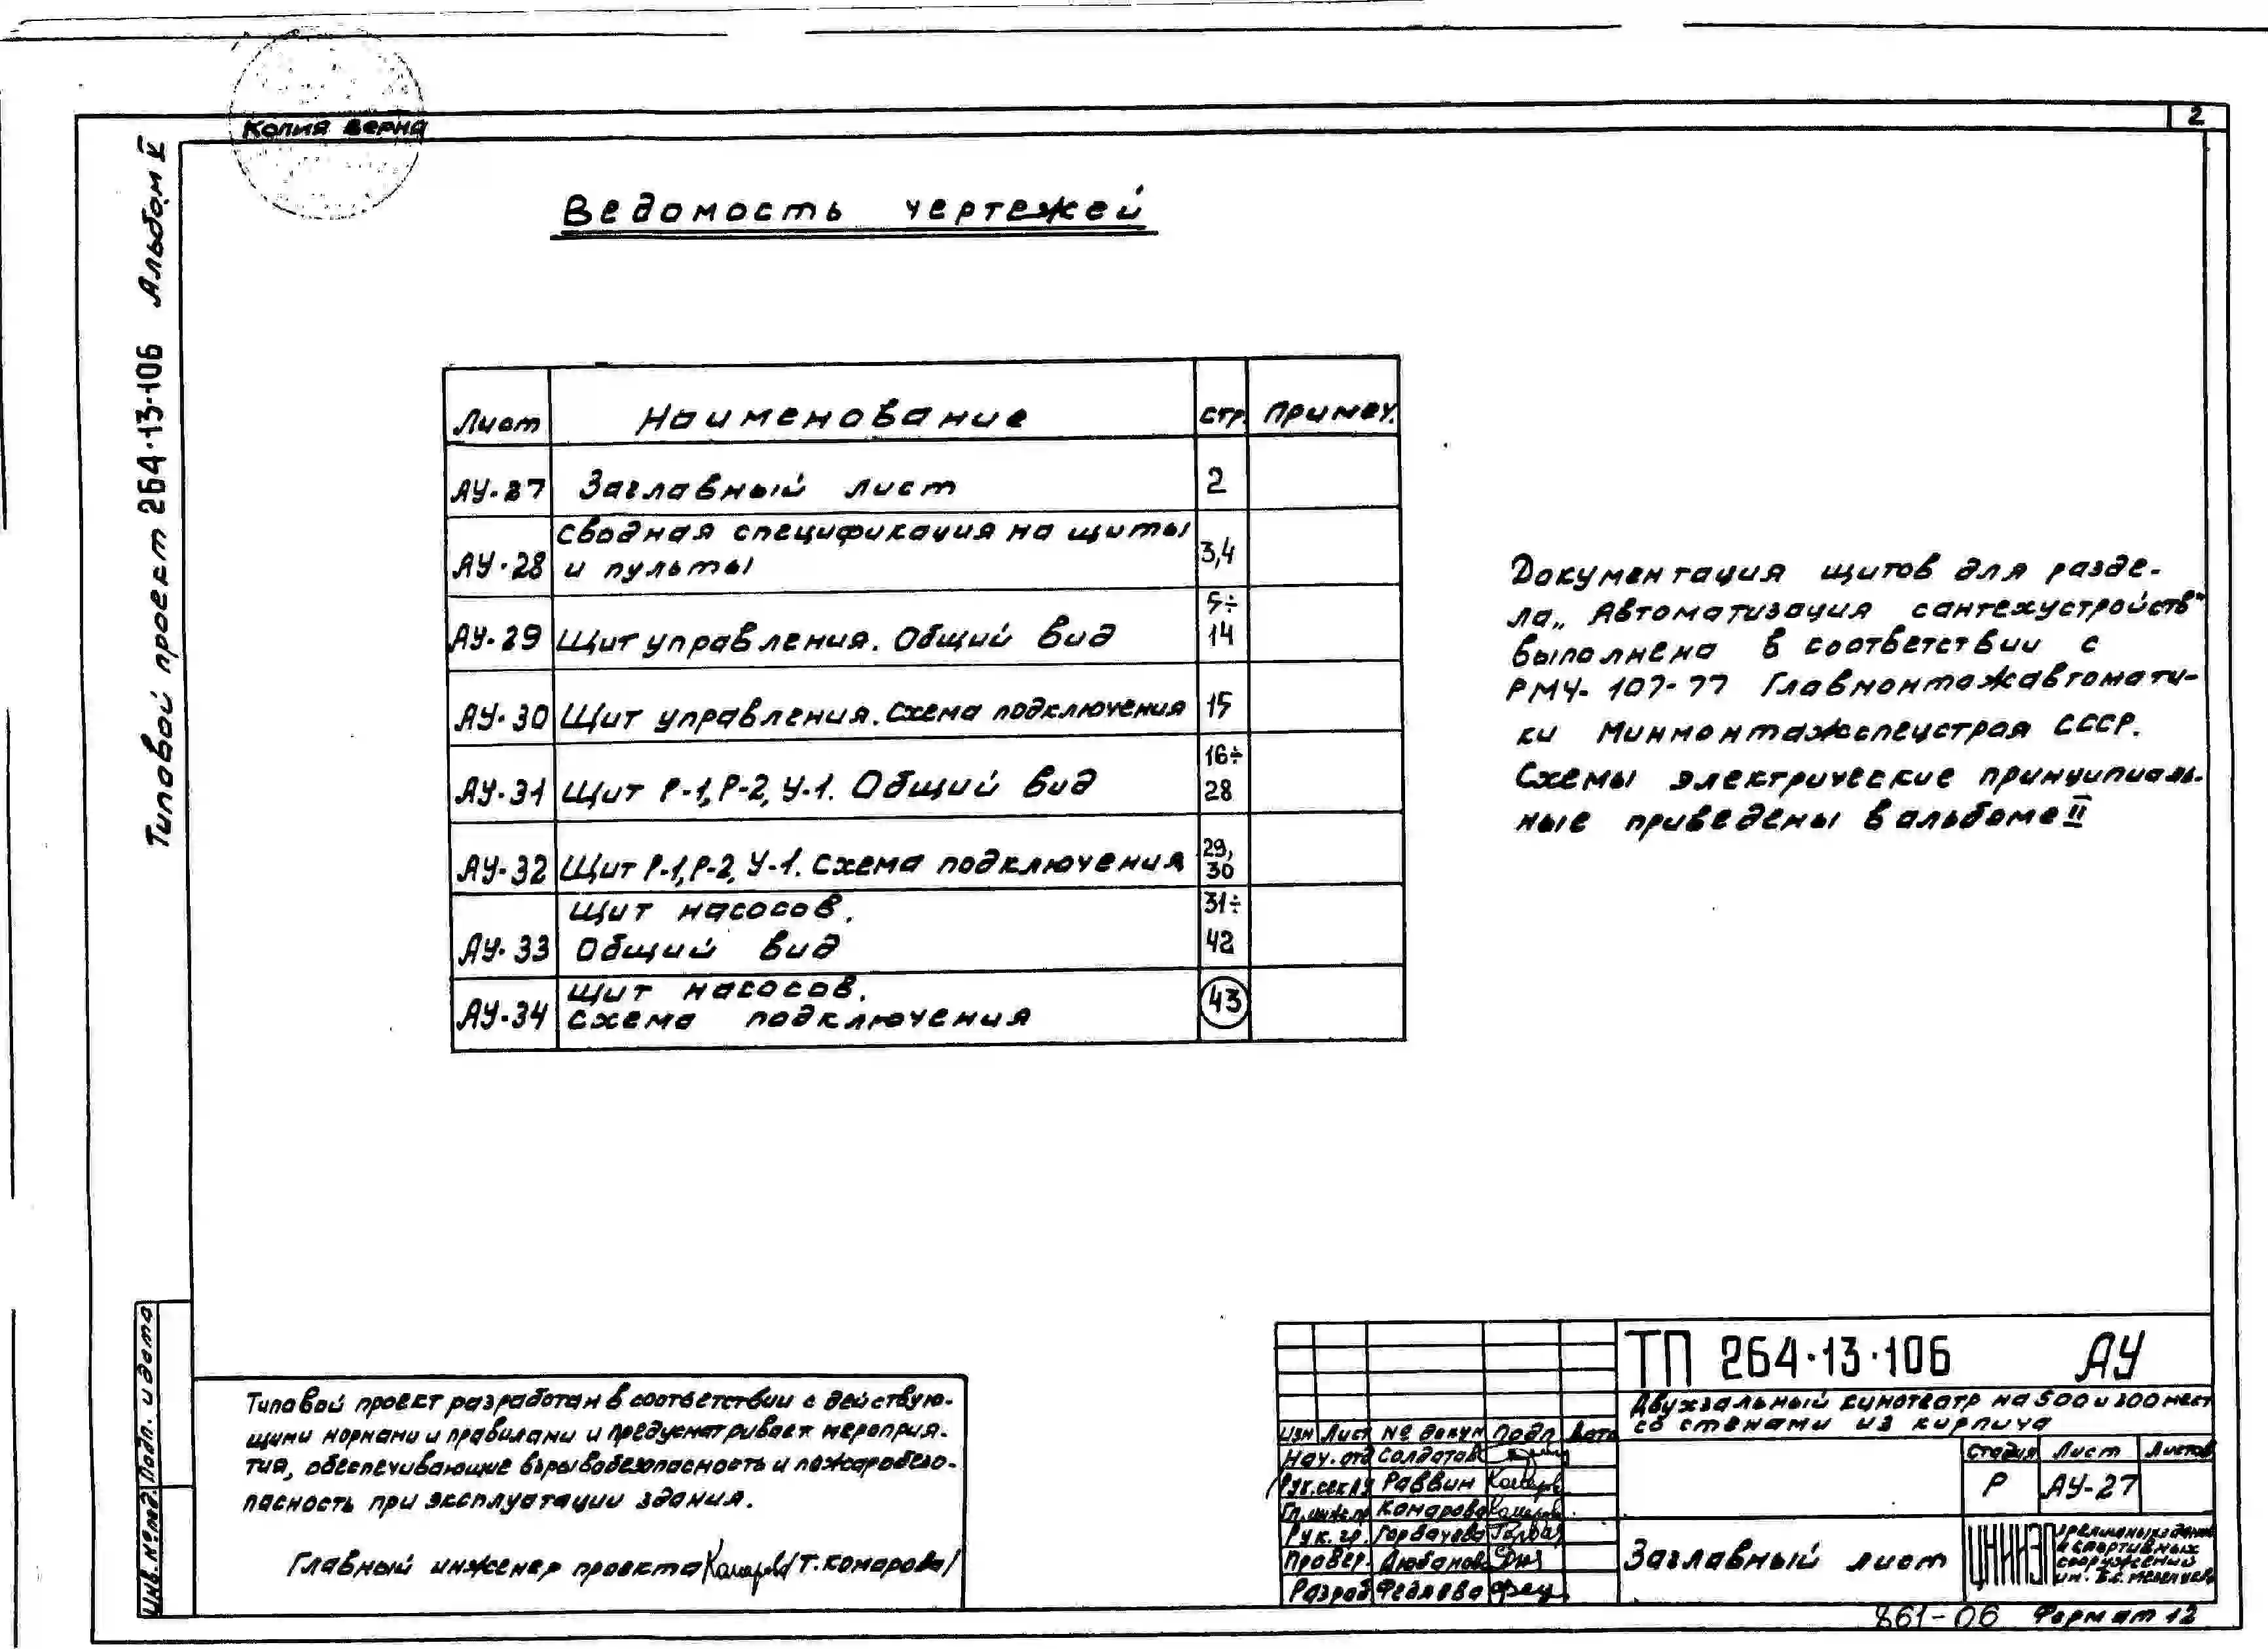 2
Копия верна
Типовой проект 264-13-106 Альбом V
Ведомость чертежей
Лист Наименование стр. Примеч.
АУ-27 Заглавный лист 2
АУ-28 Сводная спецификация на щиты
и пульты 3,4
АУ-29 Щит управления. Общий вид 5÷
14
АУ-30 Щит управления. Схема подключения 15
АУ-31 Щит Р-1, Р-2, У-1. Общий вид 16÷
28
АУ-32 Щит Р-1, Р-2, У-1. Схема подключения 29,
30
Щит насосов. 31÷
АУ-33 Общий вид 42
Щит насосов.
АУ-34 Схема подключения 43
Документация щитов для разде-
ла „Автоматизация сантехустройств"
выполнена в соответствии с
РМ4-107-77 Главмонтажавтомати-
ки Минмонтажспецстроя СССР.
Схемы электрические принципиаль-
ные приведены в альбоме II
Типовой проект разработан в соответствии с действую-
щими нормами и правилами и предусматривает мероприя-
тия, обеспечивающие взрывобезопасность и пожаробезо-
пасность при эксплуатации здания.
Главный инженер проекта /Т. Комарова/
Инв. № подл. Подп. и дата
ТП 264-13-106 АУ
Двухзальный кинотеатр на 500 и 300 мест
со стенами из кирпича
Изм Лист № докум Подп Дата
Нач. отд Солдатов
Рук. сек АУ Раввин
Гл. инж. пр. Комарова
Рук. гр. Горбачева
Провер. Дюбанова
Разраб
Стадия Лист Листов
Р АУ-27
Заглавный лист
ЦНИИЭП зрелищных зданий
и спортивных
сооружений
им. Б.С. Мезенцева
861-06 Формат 12